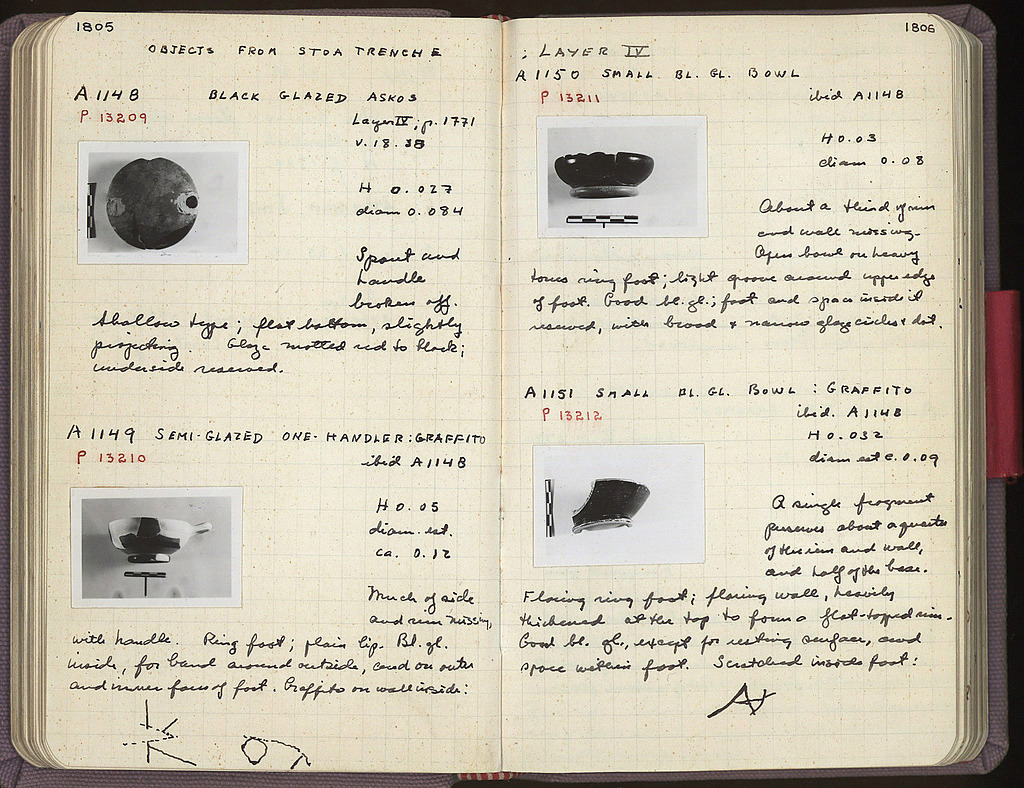 1805
OBJECTS FROM STOA TRENCH E
A 1148 BLACK GLAZED ASKOS
P 13209
Layer IV; p. 1771
V. 18. 38
H 0.027
diam 0.084
Spout and
handle
broken off.
Shallow type; flat bottom, slightly
projecting. Glaze mottled red to black;
underside reserved.
A 1149 SEMI-GLAZED ONE-HANDLER: GRAFFITO
P 13210
ibid A1148
H 0.05
diam. est.
ca. 0.12
Much of side
and rim missing,
with handle. Ring foot; plain lip. Bl. gl.
inside, for band around outside, and on outer
and inner face of foot. Graffito on wall inside:
1806
: LAYER IV
A 1150 SMALL BL. GL. BOWL
P 13211
ibid A1148
H 0.03
diam 0.08
About a third of rim
and wall missing.
Open bowl on heavy
torus ring foot; light groove around upper edge
of foot. Good bl. gl.; foot and space inside it
reserved, with broad & narrow glaze circles & dot.
A 1151 SMALL BL. GL. BOWL : GRAFFITO
P 13212
ibid. A1148
H 0.032
diam est c. 0.09
A single fragment
preserves about a quarter
of the rim and wall,
and half of the base.
Flaring ring foot; flaring wall, heavily
thickened at the top to form a flat-topped rim.
Good bl. gl., except for resting surface, and
space within foot. Scratched inside foot: